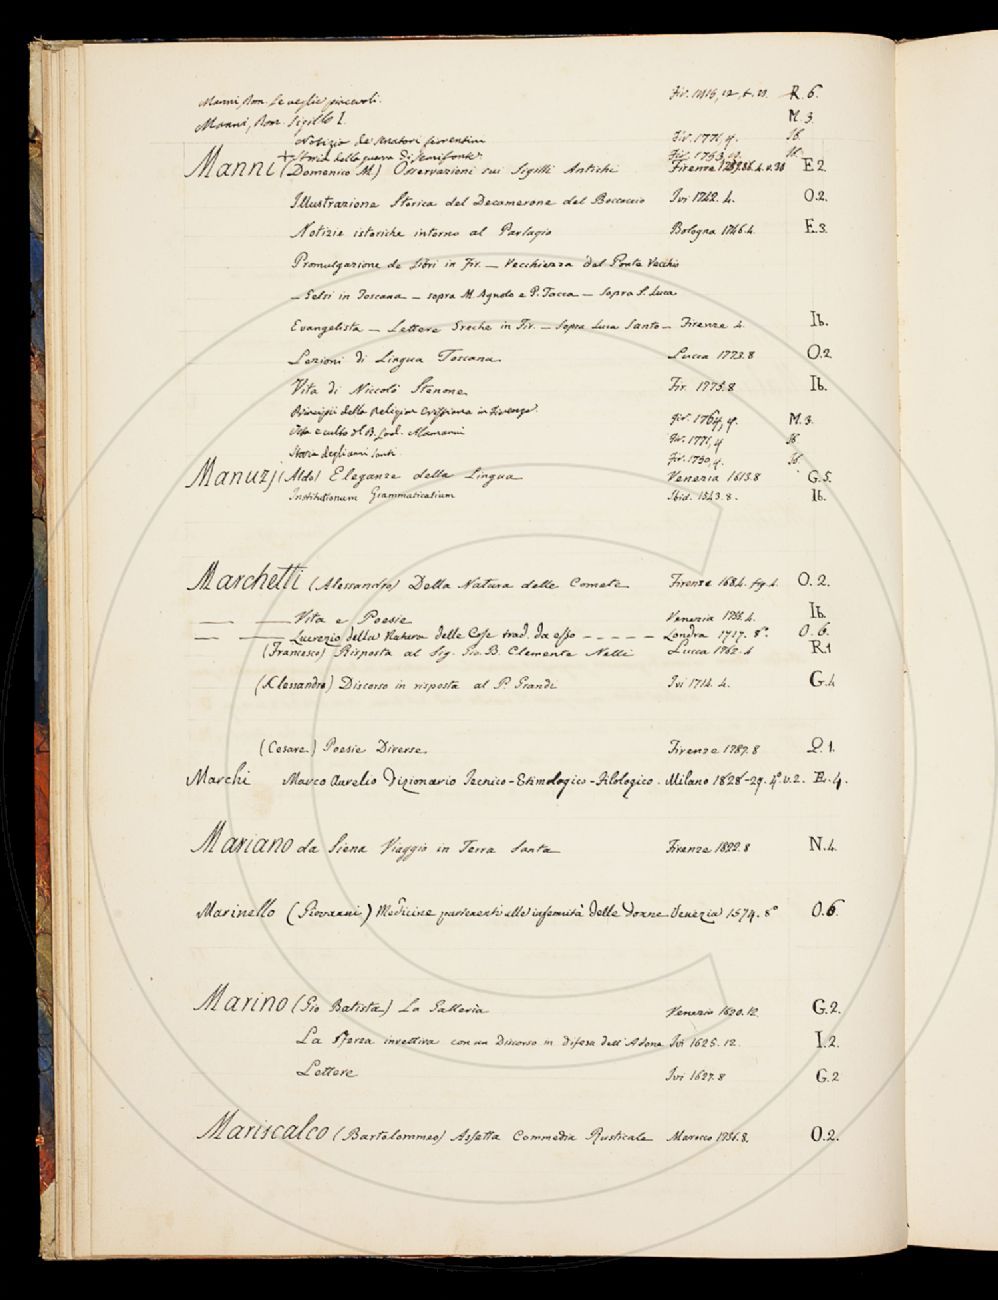 Manni, Dom. Le veglie piacevoli. Fir. 1815, 12, t. R. 6.
Manni, Dom. Sigillo I. M. 3.
Notizie de' Senatori fiorentini Fir. 1771, 4. Ib.
+ Storia della guerra di Semifonte. Fir. 1753, Ib.
Manni (Domenico M.) Osservazioni sui Sigilli Antichi Firenze 4. v. E 2.
Illustrazione Storica del Decamerone del Boccaccio Ivi 1742. 4. O.2.
Notizie istoriche intorno al Parlagio Bologna 1746. 4. E.3.
Promulgazione de Libri in Fir. — Vecchiezza del Ponte Vecchio
— Gelsi in Toscana — sopra M. Agnolo e P. Tacca — Sopra S. Luca
Evangelista — Lettere Greche in Fir. — Sopra Luca Santo — Firenze 4. Ib.
Lezioni di Lingua Toscana Lucca 1773. 8 O.2
Vita di Niccolò Stenone Fir. 1775. 8 Ib.
Principii della Religion Cristiana in Firenze. Fir. 1764, 4. M. 3.
Vita e culto del B. Lod. Alamanni Fir. 1771, 4 Ib.
Storia degli anni Santi Fir. 1750, 4. Ib.
Manuzj (Aldo) Eleganze della Lingua Venezia 1613. 8 G. 5.
Institutionum Grammaticalium Ibid. 1543. 8. Ib.
Marchetti (Alessandro) Della Natura delle Comete Firenze 1684. fig. 4. O. 2.
— — Vita e Poesie Venezia 1755. 4. Ib.
— — Lucrezio della Natura delle Cose trad. da esso – – – – – Londra 1717. 8°. O. 6.
(Francesco) Risposta al Sig. Gio. B. Clemente Nelli Lucca 1762. 4 R.1
(Alessandro) Discorso in risposta al P. Grandi Ivi 1714. 4. G.4
(Cesare) Poesie Diverse Firenze 1787. 8 Q. 1.
Marchi Marco Aurelio Dizionario Tecnico-Etimologico-Filologico. Milano 1828-29. 4° v. 2. E. 4.
Mariano da Siena Viaggio in Terra Santa Firenze 1822. 8 N.4.
Marinello (Giovanni) Medicine partenenti alle infermità delle donne Venezia 1574. 8° O. 6.
Marino (Gio Batista) La Galleria Venezia 1620. 12. G.2.
La Sferza invettiva con un Discorso in difesa dell'Adone Ivi 1625. 12. I.2.
Lettere Ivi 1627. 8 G.2
Mariscalco (Bartolommeo) Assetta Commedia Rusticale 8. O.2.